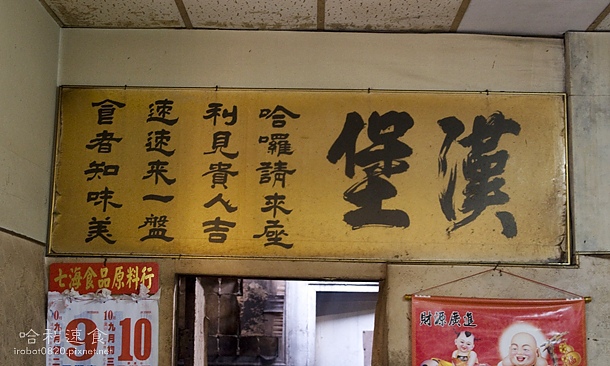 漢堡
哈囉請來座
利見貴人吉
速速來一盤
食者知味美
七海食品原料行
9
10
財源廣進
哈精速食
irobot0820.pixnet.net